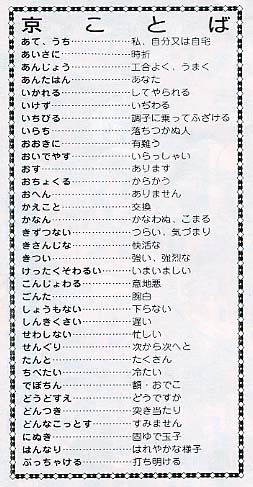 京ことば
あて、うち……………私、自分又は自宅
あいさに………………時折
あんじょう……………工合よく、うまく
あんたはん……………あなた
いかれる………………してやられる
いけず…………………いぢわる
いちびる………………調子に乗ってふざける
いらち…………………落ちつかぬ人
おおきに………………有難う
おいでやす……………いらっしゃい
おす……………………あります
おちょくる……………からかう
おへん…………………ありません
かえこと………………交換
かなん…………………かなわぬ、こまる
きずつない……………つらい、気づまり
きさんじな……………快活な
きつい…………………強い、強烈な
けったくそわるい……いまいましい
こんじょわる…………意地悪
ごんた…………………腕白
しょうもない…………下らない
しんきくさい…………遅い
せわしない……………忙しい
せんぐり………………次から次へと
たんと…………………たくさん
ちべたい………………冷たい
でぼちん………………額・おでこ
どうどすえ……………どうですか
どんつき………………突き当たり
どんなこっとす………すみません
にぬき…………………固ゆで玉子
はんなり………………はれやかな様子
ぶっちゃける…………打ち明ける